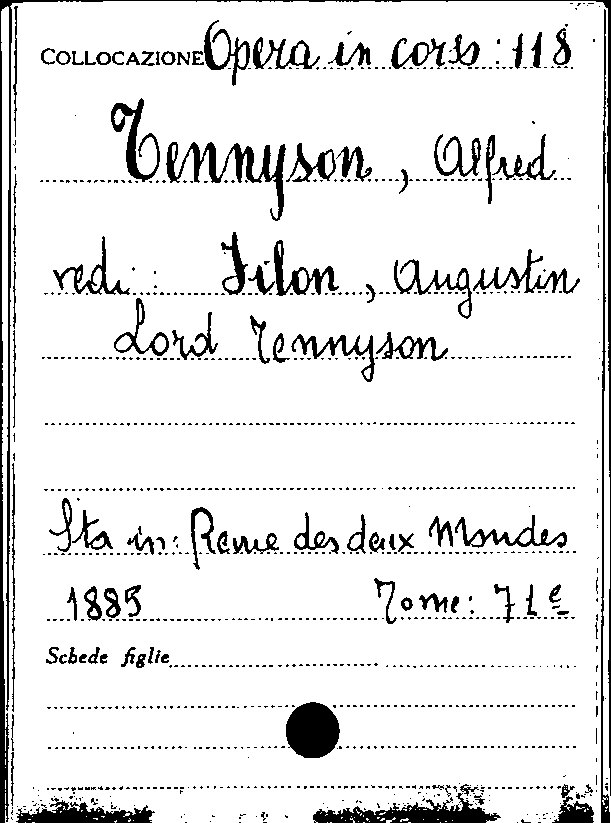 COLLOCAZIONE Opera in corso: 118
Tennyson, Alfred
vedi: Filon, Augustin
Lord Tennyson
Sta in: Revue des deux Mondes
1885 Tome: 71e
Schede figlie